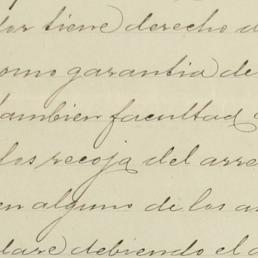 dor tiene derecho a
como garantia de
tambien facultad
los recoja del arre
en alguno de los a
dare debiendo el a